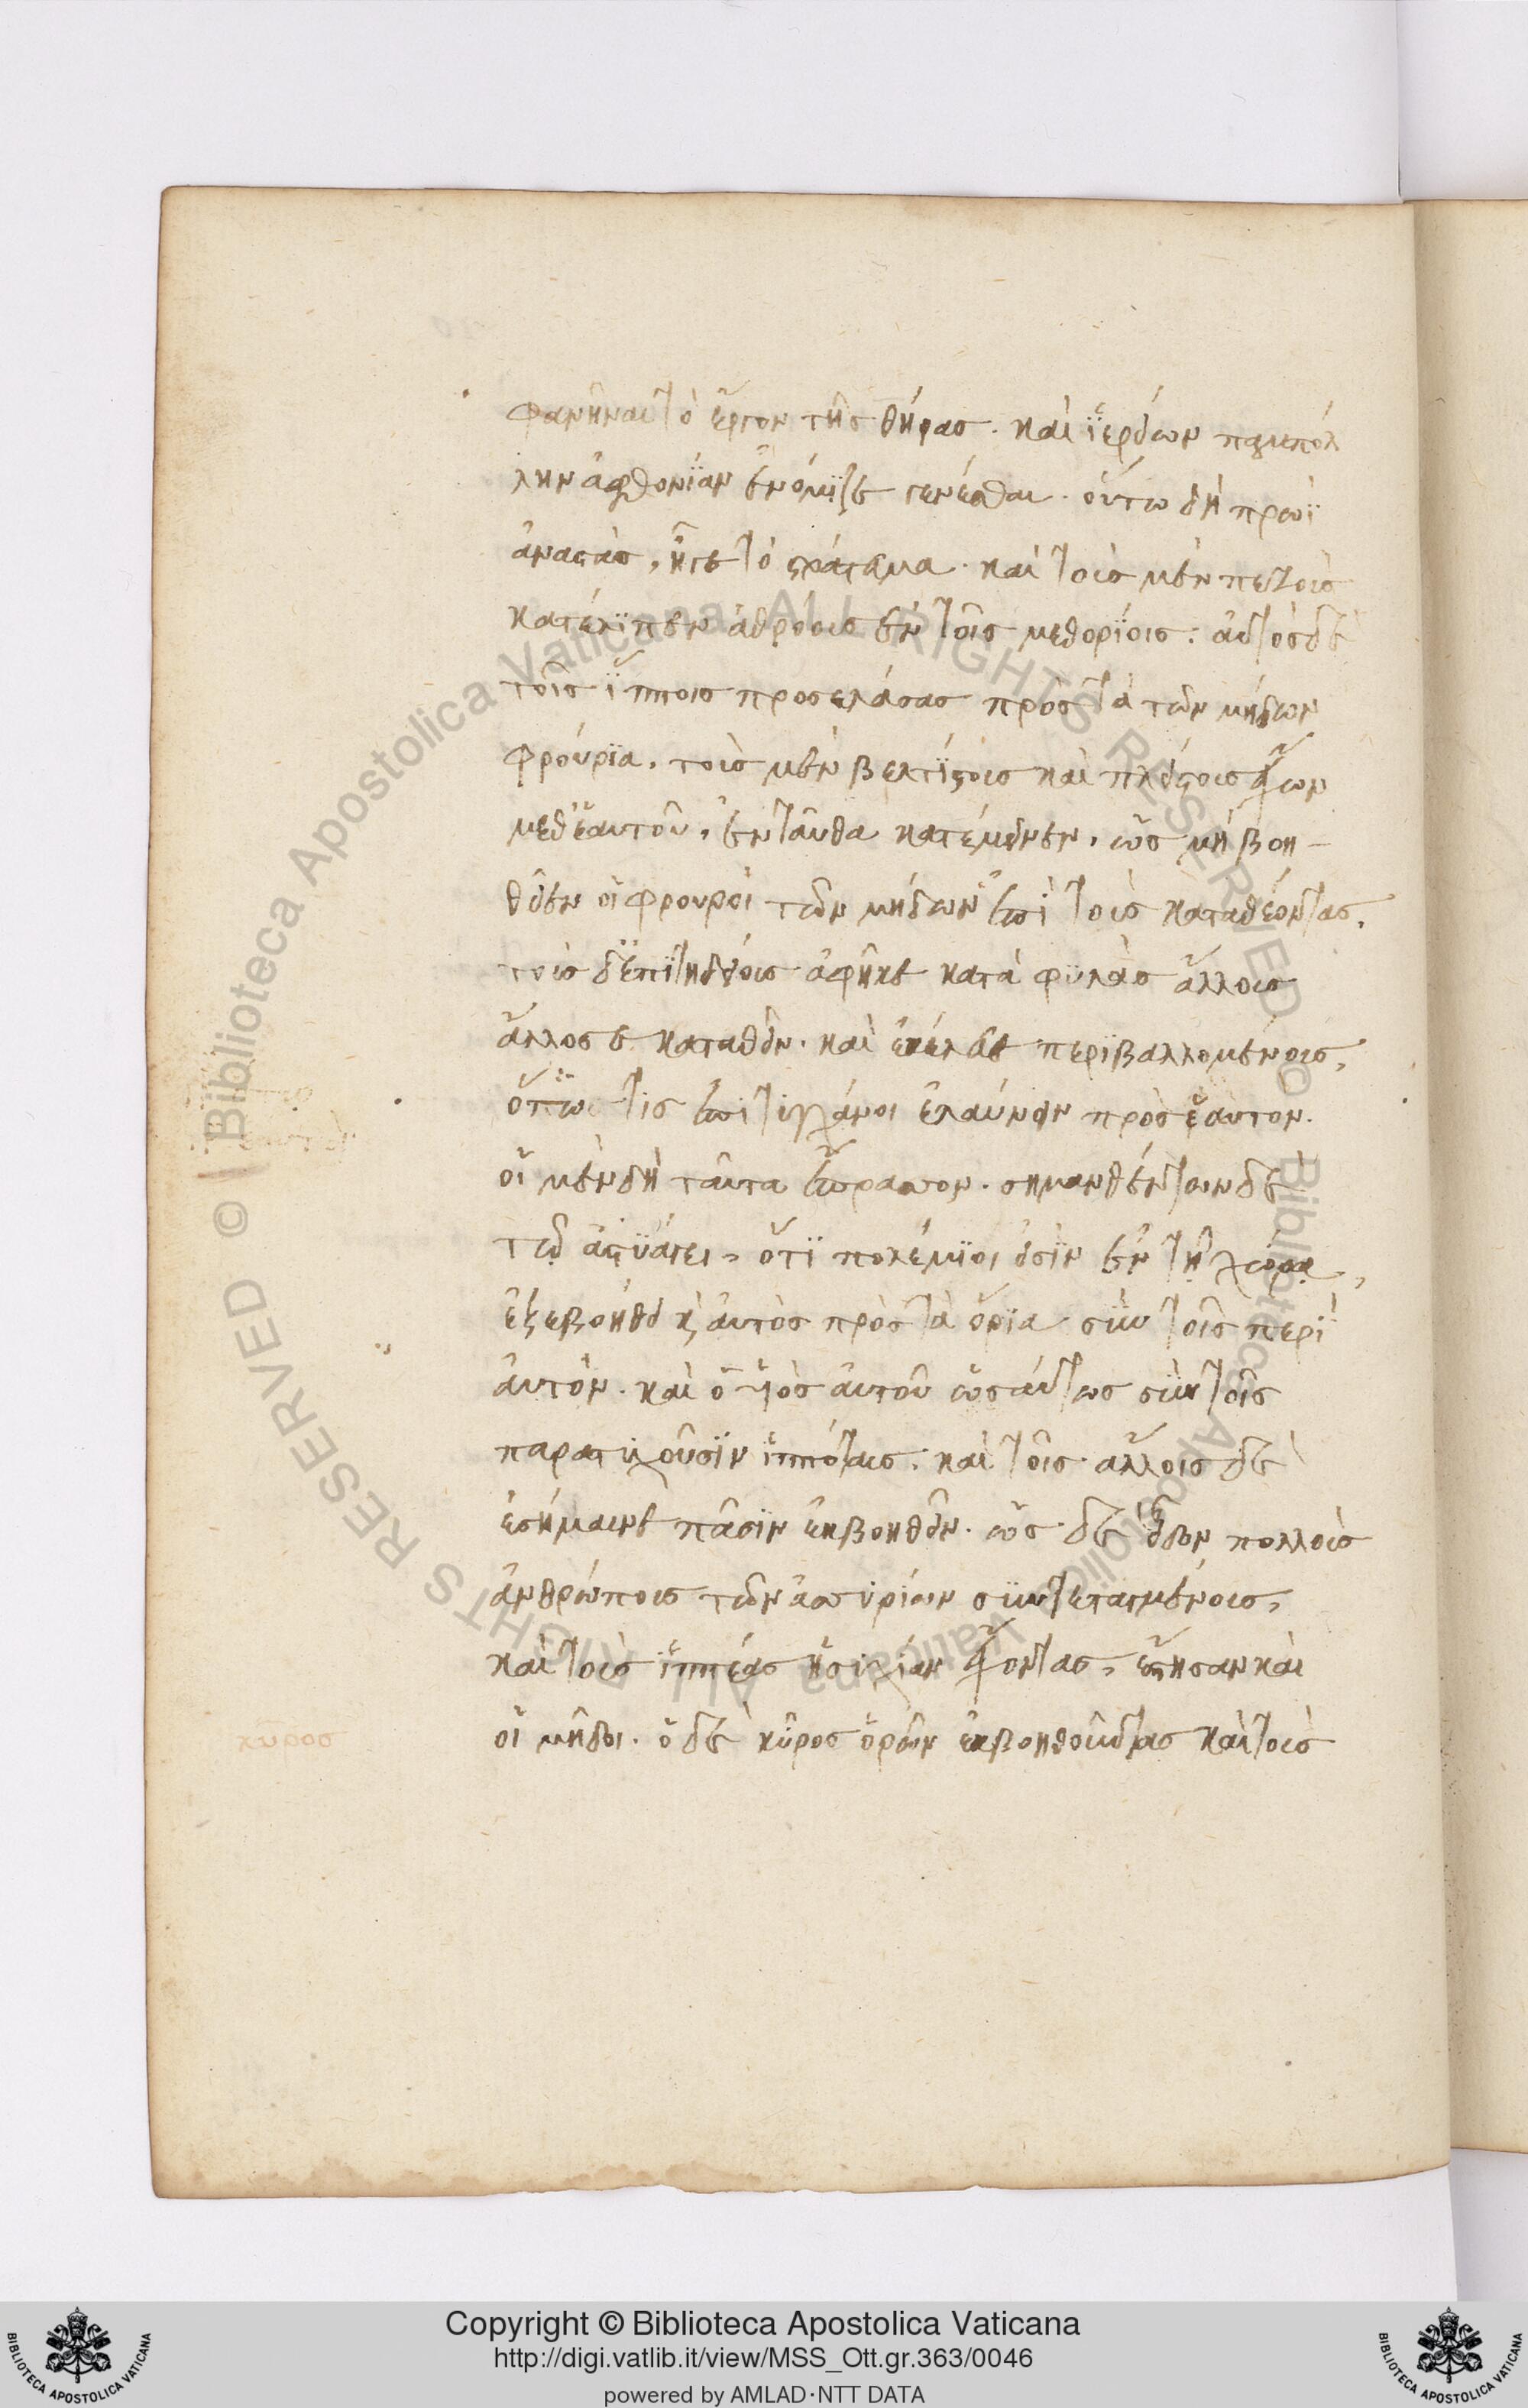 φανῆναι τὸ ἔργον τῆς θήρας. καὶ ἱερείων παμπόλ
λην ἀφθονίαν ἐνόμιζε γενέσθαι. οὕτω δὴ πρωῒ
ἀναστὰς, ἦγε τὸ στράτευμα. καὶ τοὺς μὲν πεζοὺς
κατέλιπεν ἀθρόους ἐν τοῖς μεθορίοις. αὐτὸς δὲ
τοῖς ἵπποις προσελάσας πρὸς τὰ τῶν μήδων
φρούρια. τοὺς μὲν βελτίστους καὶ πλείστους ἔχων
μεθ' ἑαυτοῦ, ἐνταῦθα κατέμεινεν, ὡς μὴ βοη-
θοῖεν οἱ φρουροὶ τῶν μήδων ἐπὶ τοὺς καταθέοντας.
τοὺς δ' ἐπιτηδείους ἀφῆκε κατὰ φυλὰς ἄλλους
ἄλλοσε καταθεῖν. καὶ ἐκέλευε περιβαλλομένους,
ὅτῳ τις ἐπιτυγχάνοι ἐλαύνειν πρὸς ἑαυτον.
οἱ μὲν δὴ ταῦτα ἔπραττον. σημανθέντων δὲ
τῷ ἀστυάγει, ὅτι πολέμιοί εἰσιν ἐν τῇ χώρᾳ,
ἐξεβοήθει καὶ αὐτὸς πρὸς τὰ ὅρια σὺν τοῖς περὶ
αὐτὸν. καὶ ὁ υἱὸς αὐτοῦ ὡσαύτως σὺν τοῖς
παρατυχοῦσιν ἱππόταις. καὶ τοῖς ἄλλοις δὲ
ἐσήμαινε πᾶσιν ἐκβοηθεῖν. ὡς δὲ εἶδον πολλοὺς
ἀνθρώπους τῶν ἀσσυρίων συντεταγμένους,
καὶ τοὺς ἱππέας ἡσυχίαν ἔχοντας, ἔστησαν καὶ
οἱ μῆδοι. ὁ δὲ κῦρος ὁρῶν ἐκβοηθοῦντας καὶ τοὺς
κῦρος
Copyright © Biblioteca Apostolica Vaticana
http://digi.vatlib.it/view/MSS_Ott.gr.363/0046
powered by AMLAD·NTT DATA